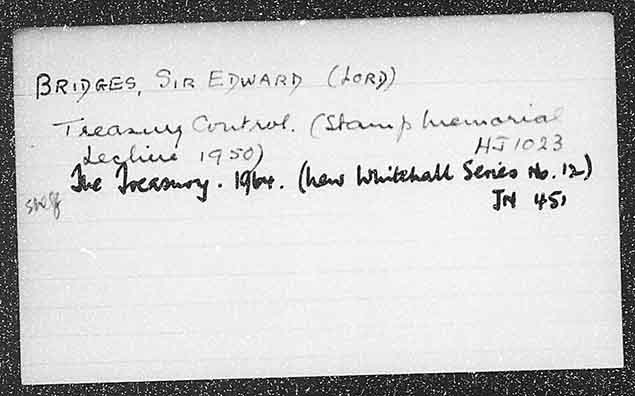 BRIDGES, SIR EDWARD (LORD)
Treasury Control. (Stamp Memorial
Lecture 1950) HJ 1023
The Treasury. 1964. (New Whitehall Series No. 12)
JN 451